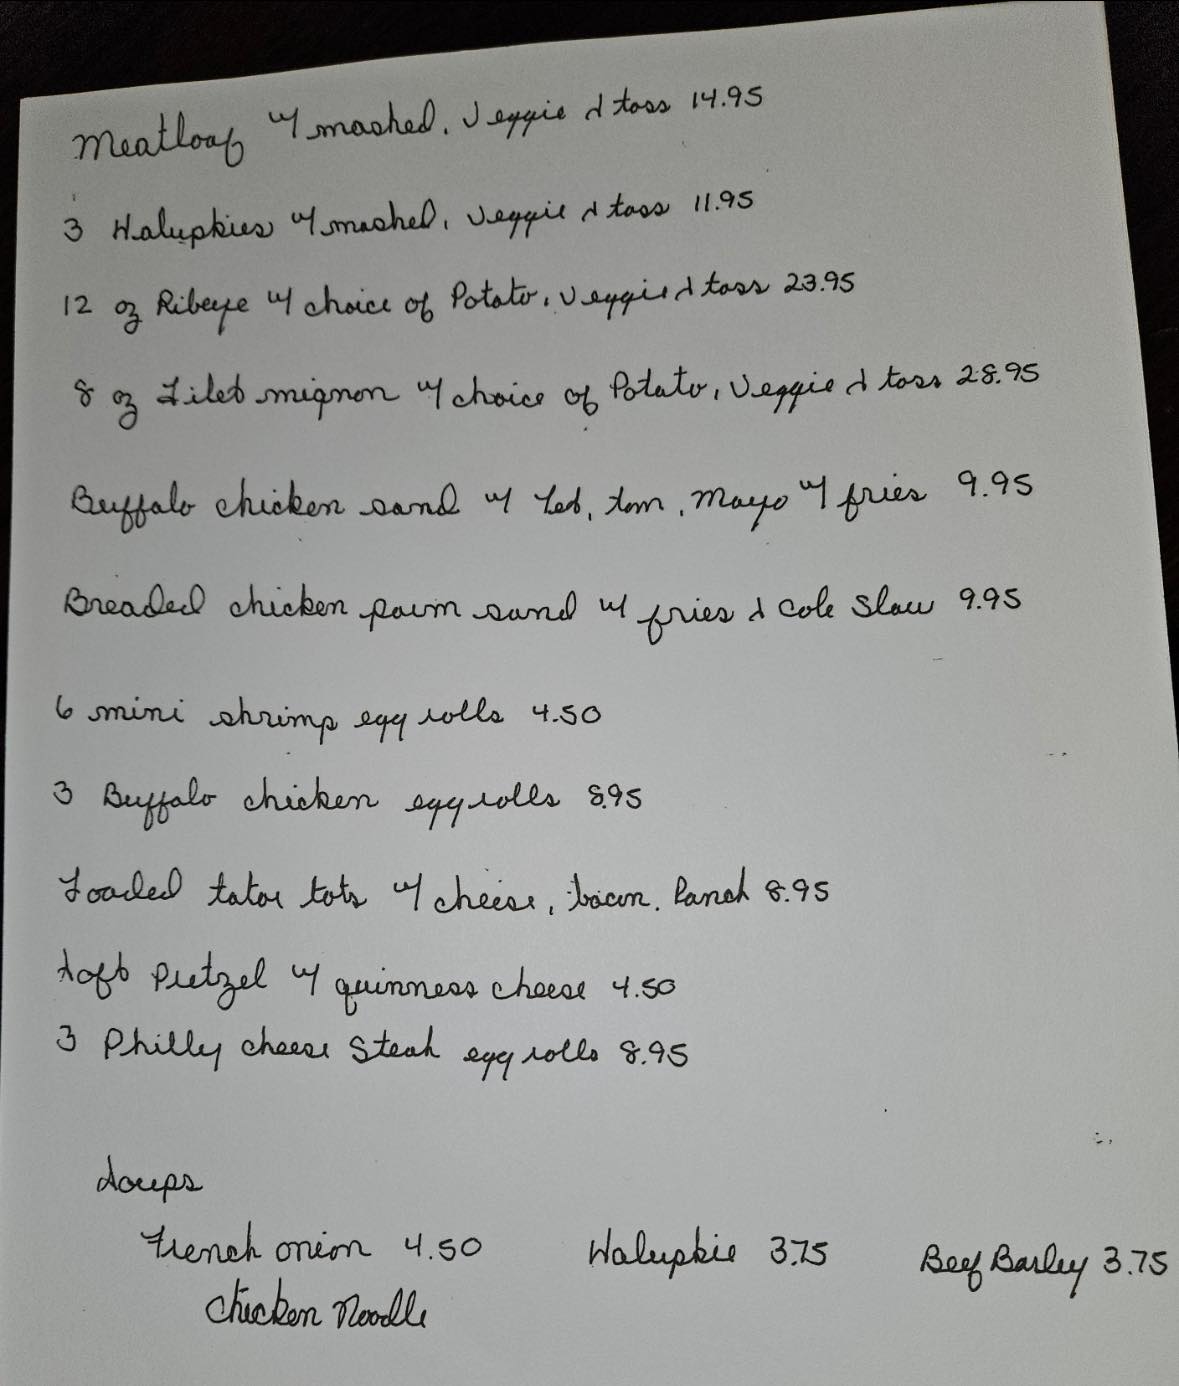 Meatloaf w/ mashed, Veggie & toss 14.95
3 Halupkies w/ mashed, Veggie & toss 11.95
12 oz Ribeye w/ choice of Potato, Veggie & toss 23.95
8 oz Filet mignon w/ choice of Potato, Veggie & toss 28.95
Buffalo chicken sand w/ Let, tom, Mayo w/ fries 9.95
Breaded chicken parm sand w/ fries & Cole Slaw 9.95
6 mini shrimp egg rolls 4.50
3 Buffalo chicken egg rolls 8.95
Loaded tator tots w/ cheese, bacon, Ranch 8.95
Soft Pretzel w/ guinness cheese 4.50
3 Philly cheese Steak egg rolls 8.95
Soups
French onion 4.50 Halupkie 3.75 Beef Barley 3.75
Chicken Noodle